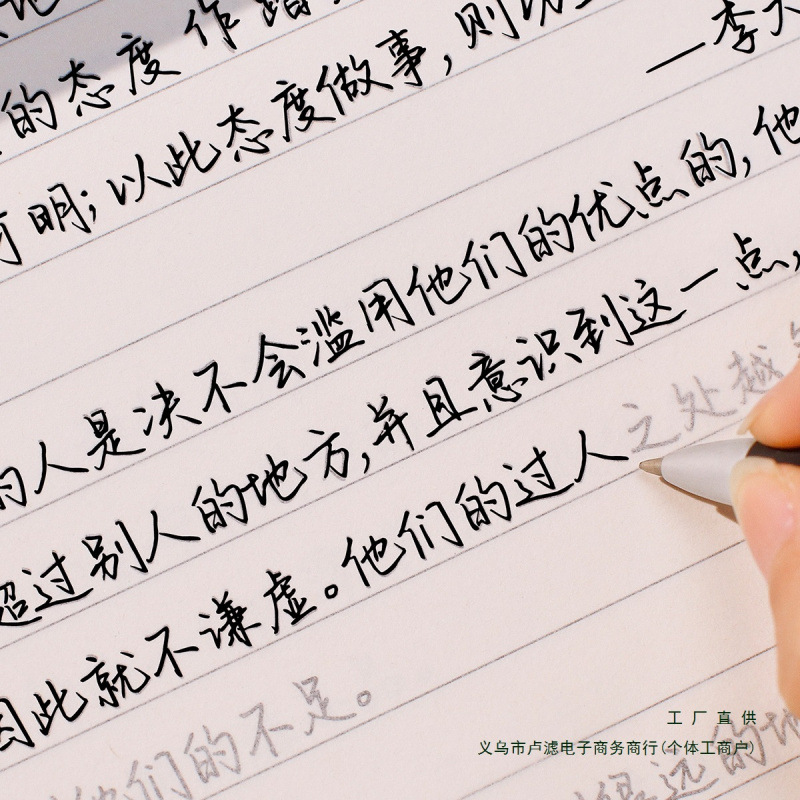 的态度作踏
有明；以此态度做事，则
—李大
的人是决不会滥用他们的优点的，他
超过别人的地方，并且意识到这一点，
因此就不谦虚。他们的过人之处越
他们的不足。
很远的地
工厂直供
义乌市卢滤电子商务商行(个体工商户)